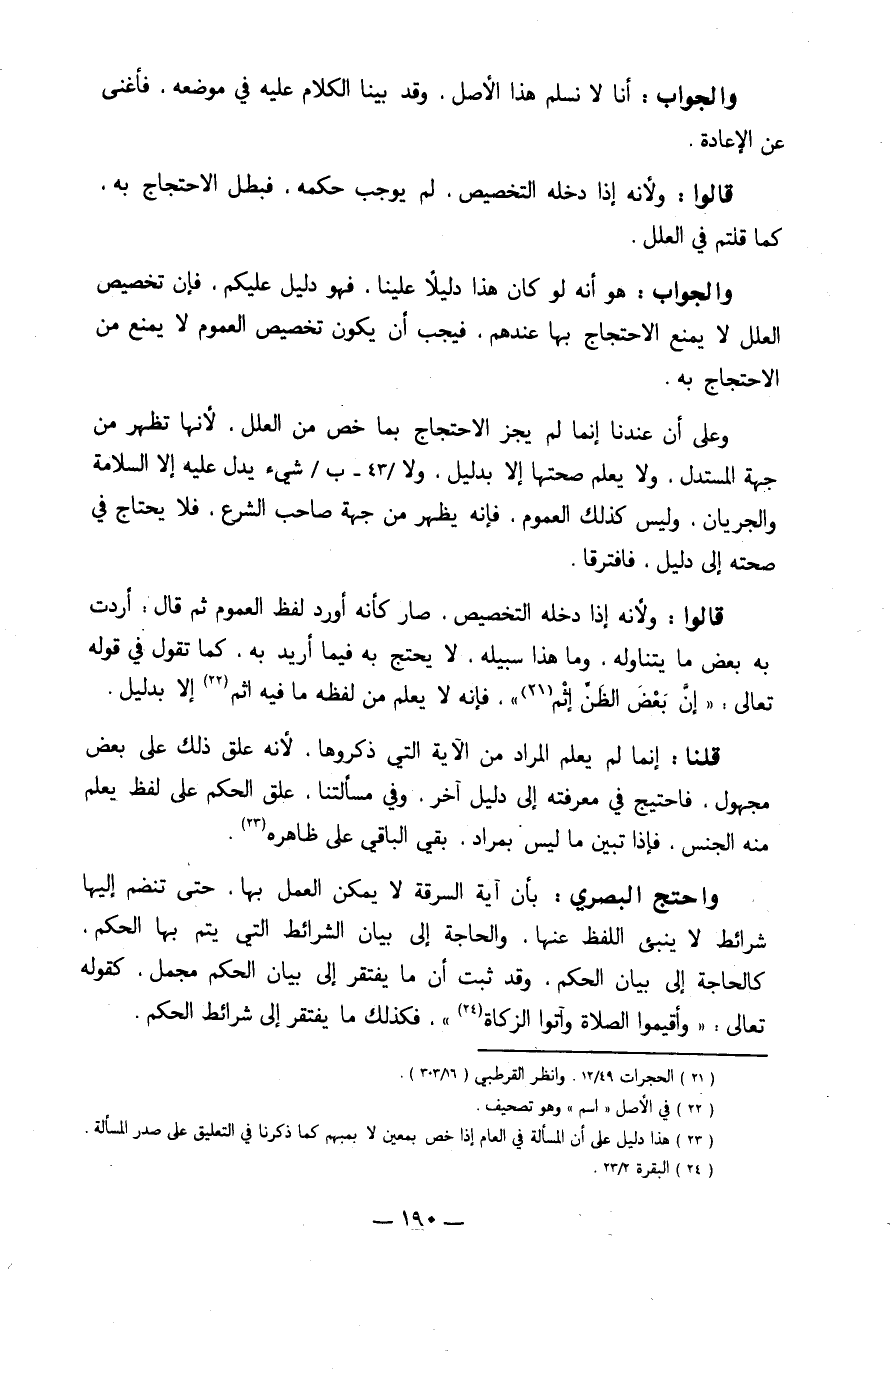 والجواب : أنا لا نسلم هذا الأصل . وقد بينا الكلام عليه في موضعه . فأغنى
عن الإعادة .
قالوا : ولأنه إذا دخله التخصيص . لم يوجب حكمه . فبطل الاحتجاج به .
كما قلتم في العلل .
والجواب : هو أنه لو كان هذا دليلًا علينا . فهو دليل عليكم . فإن تخصيص
العلل لا يمنع الاحتجاج بها عندهم . فيجب أن يكون تخصيص العموم لا يمنع من
الاحتجاج به .
وعلى أن عندنا إنما لم يجز الاحتجاج بما خص من العلل . لأنها تظهر من
جهة المستدل . ولا يعلم صحتها إلا بدليل . ولا /٤٣ ـ ب / شيء يدل عليه إلا السلامة
والجريان . وليس كذلك العموم . فإنه يظهر من جهة صاحب الشرع . فلا يحتاج في
صحته إلى دليل . فافترقا .
قالوا : ولأنه إذا دخله التخصيص . صار كأنه أورد لفظ العموم ثم قال : أردت
به بعض ما يتناوله . وما هذا سبيله . لا يحتج به فيما أريد به . كما تقول في قوله
تعالى : « إنَّ بَعْضَ الظَنِّ إثْم(٢١)» . فإنه لا يعلم من لفظه ما فيه اثم(٢٢) إلا بدليل .
قلنا : إنما لم يعلم المراد من الآية التي ذكروها . لأنه علق ذلك على بعض
مجهول . فاحتيج في معرفته إلى دليل آخر . وفي مسألتنا . علق الحكم على لفظ يعلم
منه الجنس . فإذا تبين ما ليس بمراد . بقي الباقي على ظاهره(٢٣) .
واحتج البصري : بأن آية السرقة لا يمكن العمل بها . حتى تنضم إليها
شرائط لا ينبئ اللفظ عنها . والحاجة إلى بيان الشرائط التي يتم بها الحكم .
كالحاجة إلى بيان الحكم . وقد ثبت أن ما يفتقر إلى بيان الحكم مجمل . كقوله
تعالى : « وأقيموا الصلاة وآتوا الزكاة(٢٤) » . فكذلك ما يفتقر إلى شرائط الحكم .
( ٢١ ) الحجرات ١٢/٤٩ . وانظر القرطبي ( ٣٠٣/١٦ ) .
( ٢٢ ) في الأصل « اسم » وهو تصحيف .
( ٢٣ ) هذا دليل على أن المسألة في العام إذا خص بمعين لا بمبهم كما ذكرنا في التعليق على صدر المسألة .
( ٢٤ ) البقرة ٢٣/٢ .
— ١٩٠ —